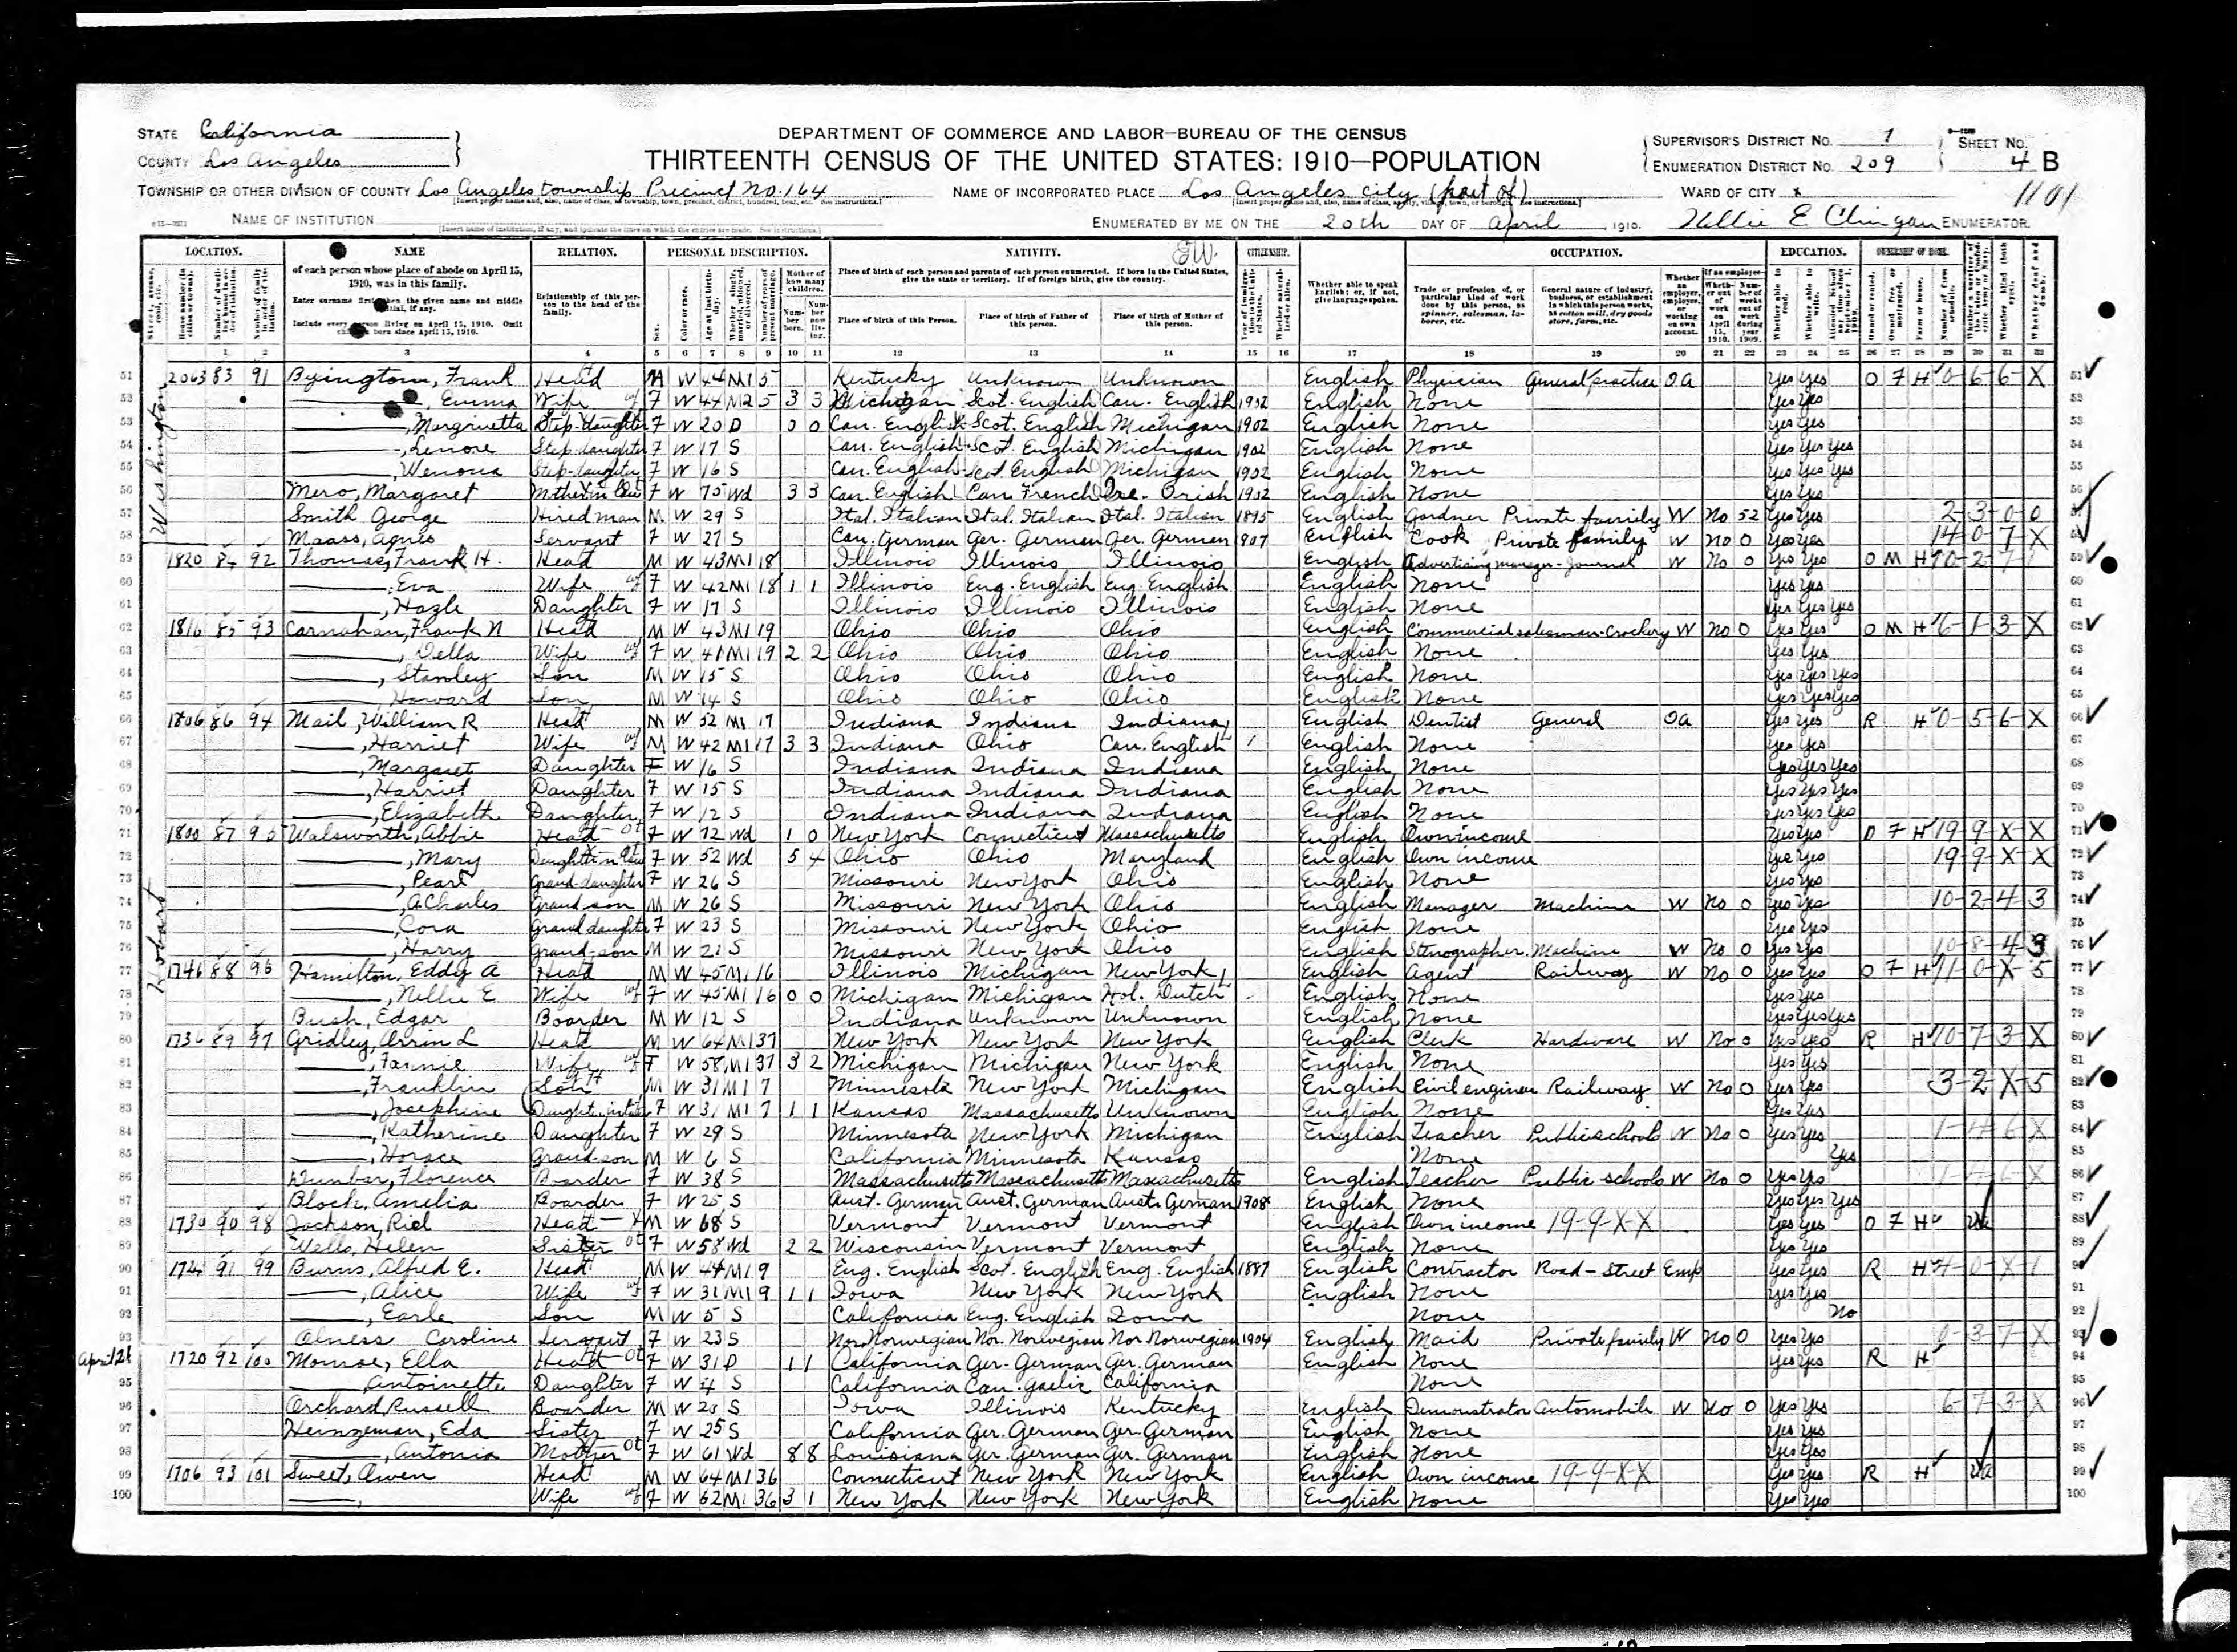 STATE California
COUNTY Los Angeles
DEPARTMENT OF COMMERCE AND LABOR—BUREAU OF THE CENSUS
THIRTEENTH CENSUS OF THE UNITED STATES: 1910—POPULATION
SUPERVISOR'S DISTRICT NO. 1
ENUMERATION DISTRICT NO. 209
SHEET NO. 4 B
TOWNSHIP OR OTHER DIVISION OF COUNTY Los Angeles township Precinct No. 164
NAME OF INCORPORATED PLACE Los Angeles City (part of)
WARD OF CITY x
1101
NAME OF INSTITUTION
ENUMERATED BY ME ON THE 20th DAY OF April, 1910. Nellie E Clingan ENUMERATOR.
LOCATION. NAME RELATION. PERSONAL DESCRIPTION. NATIVITY. CITIZENSHIP. OCCUPATION. EDUCATION. OWNERSHIP OF HOME.
of each person whose place of abode on April 15, 1910, was in this family.
Relationship of this person to the head of the family.
Place of birth of each person and parents of each person enumerated. If born in the United States, give the state or territory. If of foreign birth, give the country.
Place of birth of this Person. Place of birth of Father of this person. Place of birth of Mother of this person.
Whether able to speak English; or, if not, give language spoken.
1 2 3 4 5 6 7 8 9 10 11 12 13 14 15 16 17 18 19 20 21 22 23 24 25 26 27 28 29 30 31 32
Washington
51 2063 83 91 Byington, Frank Head M W 44 M1 5 Kentucky Unknown Unknown English Physician General practice OA Yes Yes O F H 0-6-6-X 51
52 Emma Wife F W 44 M2 5 3 3 Michigan Scot. English Can. English 1902 English None Yes Yes 52
53 Margrietta Step-daughter F W 20 D 0 0 Can. English Scot. English Michigan 1902 English None Yes Yes 53
54 Lenore Step daughter F W 17 S Can. English Scot. English Michigan 1902 English None Yes Yes Yes 54
55 Wenona Step-daughter F W 16 S Can. English Scot English Michigan 1902 English None Yes Yes Yes 55
56 Mero, Margaret Mother in law F W 75 Wd 3 3 Can. English Can French Ire. Irish 1902 English None Yes Yes 56
57 Smith George Hired man M W 29 S Ital. Italian Ital. Italian Ital. Italian 1895 English Gardner Private family W No 52 Yes Yes 2-3-0-0
58 Maass, Agnes Servant F W 27 S Can. German Ger. German Ger. German 1907 English Cook Private family W No 0 Yes Yes 14-0-7-X 58
59 1820 84 92 Thomas, Frank H. Head M W 43 M1 18 Illinois Illinois Illinois English Advertising manager - Journal W No 0 Yes Yes O M H 59
60 Eva Wife F W 42 M1 18 1 1 Illinois Eng. English Eng. English English None Yes Yes 60
61 Hazle Daughter F W 17 S Illinois Illinois Illinois English None Yes Yes Yes 61
62 1816 85 93 Carnahan, Frank N Head M W 43 M1 19 Ohio Ohio Ohio English Commercial salesman - Crockery W No 0 Yes Yes O M H 6-1-3-X 62
63 Della Wife F W 41 M1 19 2 2 Ohio Ohio Ohio English None Yes Yes 63
64 Stanley Son M W 15 S Ohio Ohio Ohio English None Yes Yes Yes 64
65 Howard Son M W 14 S Ohio Ohio Ohio English None Yes Yes Yes 65
66 1806 86 94 Mail, William R Head M W 52 M1 17 Indiana Indiana Indiana English Dentist General OA Yes Yes R H 0-5-6-X 66
67 Harriet Wife M W 42 M1 17 3 3 Indiana Ohio Can. English English None Yes Yes 67
68 Margaret Daughter F W 16 S Indiana Indiana Indiana English None Yes Yes Yes 68
69 Harriet Daughter F W 15 S Indiana Indiana Indiana English None Yes Yes Yes 69
70 Elizabeth Daughter F W 12 S Indiana Indiana Indiana English None Yes Yes Yes 70
Hobart
71 1800 87 95 Walsworth, Abbie Head F W 72 Wd 1 0 New York Connecticut Massachusetts English Own income Yes Yes O F H 19-9-X-X 71
72 Mary Daughter in law F W 52 Wd 5 4 Ohio Ohio Maryland English Own income Yes Yes 19-9-X-X 72
73 Pearl Grand daughter F W 26 S Missouri New York Ohio English None Yes Yes 73
74 A Charles Grand son M W 26 S Missouri New York Ohio English Manager Machine W No 0 Yes Yes 10-2-4-3 74
75 Cora Grand daughter F W 23 S Missouri New York Ohio English None Yes Yes 75
76 Harry Grand-son M W 21 S Missouri New York Ohio English Stenographer Machine W No 0 Yes Yes 10-8-4-3 76
77 1746 88 96 Hamilton, Eddy A Head M W 45 M1 16 Illinois Michigan New York English Agent Railway W No 0 Yes Yes O F H 11-0-X-5 77
78 Nellie E Wife F W 45 M1 16 0 0 Michigan Michigan Hol. Dutch English None Yes Yes 78
79 Bush, Edgar Boarder M W 12 S Indiana Unknown Unknown English None Yes Yes Yes 79
80 1736 89 97 Gridley, Orrin L Head M W 64 M1 37 New York New York New York English Clerk Hardware W No 0 Yes Yes R H 10-7-3-X 80
81 Fannie Wife F W 58 M1 37 3 2 Michigan Michigan New York English None Yes Yes 81
82 Franklin Son M W 31 M1 7 Minnesota New York Michigan English Civil engineer Railway W No 0 Yes Yes 3-2-X-5 82
83 Josephine Daughter in law F W 31 M1 7 1 1 Kansas Massachusetts Unknown English None Yes Yes 83
84 Katherine Daughter F W 29 S Minnesota New York Michigan English Teacher Public schools W No 0 Yes Yes 1-4-6-X 84
85 Horace Grand-son M W 6 S California Minnesota Kansas None Yes 85
86 Dunbar, Florence Boarder F W 38 S Massachusetts Massachusetts Massachusetts English Teacher Public schools W No 0 Yes Yes 1-4-6-X 86
87 Block, Amelia Boarder F W 25 S Aust. German Aust. German Aust. German 1908 English None Yes Yes Yes 87
88 1730 90 98 Jackson, Riel Head M W 68 S Vermont Vermont Vermont English Own income 19-9-X-X Yes Yes O F H 88
89 Wells, Helen Sister F W 58 Wd 2 2 Wisconsin Vermont Vermont English None Yes Yes 89
90 1724 91 99 Burns, Alfred E. Head M W 44 M1 9 Eng. English Scot. English Eng. English 1887 English Contractor Road-Street Emp Yes Yes R H 4-0-X-1 90
91 Alice Wife F W 31 M1 9 1 1 Iowa New York New York English None Yes Yes 91
92 Earle Son M W 5 S California Eng. English Iowa None No 92
93 Olness Caroline Servant F W 23 S Nor Norwegian Nor. Norwegian Nor Norwegian 1904 English Maid Private family W No 0 Yes Yes 0-3-7-X 93
April 21 1720 92 100 Monroe, Ella Head F W 31 D 1 1 California Ger. German Ger. German English None Yes Yes R H 94
95 Antoinette Daughter F W 4 S California Can. Gaelic California None 95
96 Orchard, Russell Boarder M W 20 S Iowa Illinois Kentucky English Demonstrator Automobile W No 0 Yes Yes 6-7-3-X 96
97 Heinzeman, Eda Sister F W 25 S California Ger. German Ger. German English None Yes Yes 97
98 Antonia Mother F W 61 Wd 8 8 Louisiana Ger. German Ger. German English None Yes Yes 98
99 1706 93 101 Sweet, Owen Head M W 64 M1 36 Connecticut New York New York English Own income 19-9-X-X Yes Yes R H 99
100 Wife F W 62 M1 36 3 1 New York New York New York English None Yes Yes 100